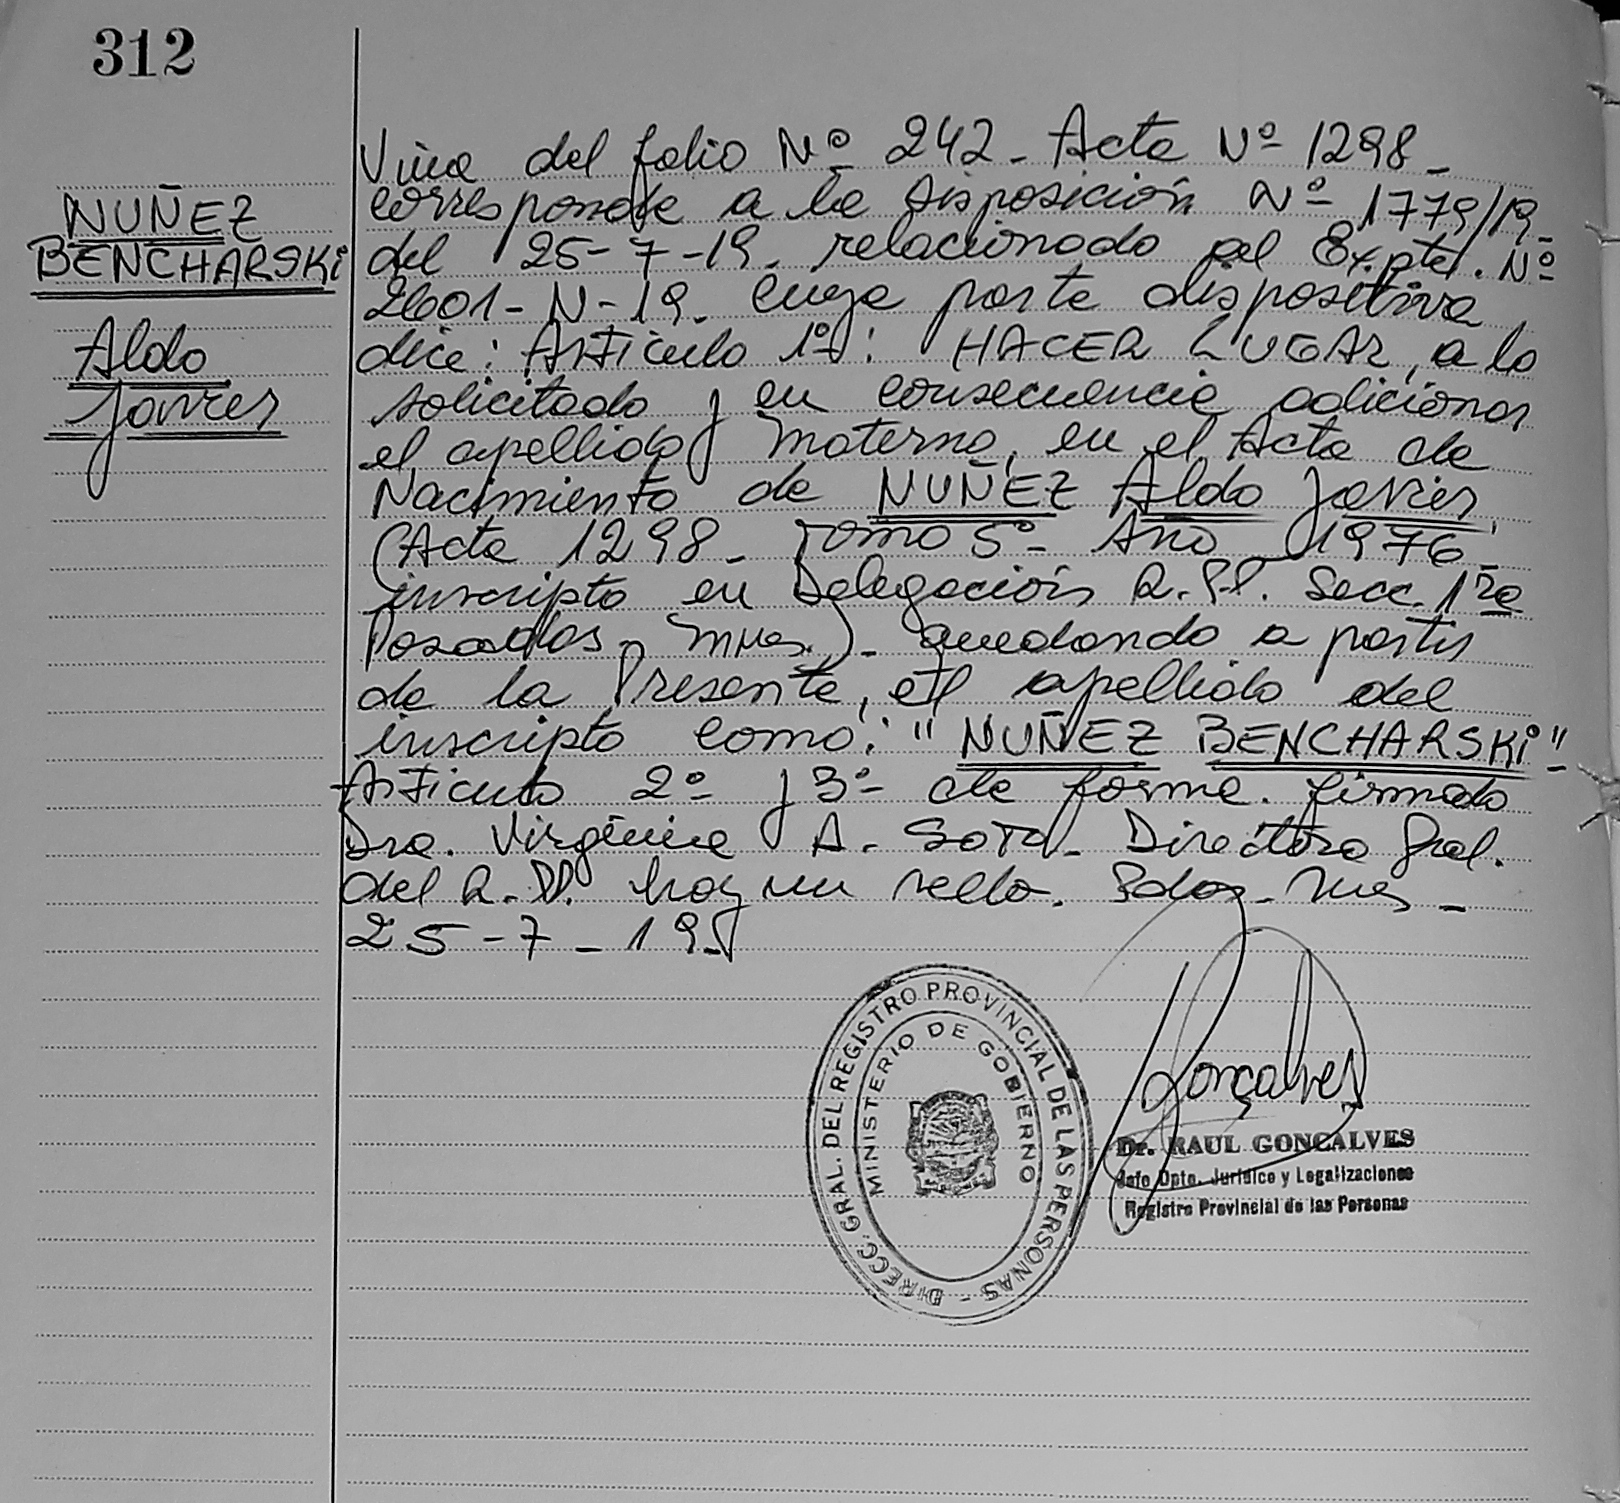 312
NUÑEZ
BENCHARSKi
Aldo
Javier
Viene del folio Nº 242 - Acta Nº 1298 -
corresponde a la Disposición Nº 1779/19 -
del 25-7-19 - relacionado al Expte. Nº
2601 - N - 19 - cuya parte dispositiva
dice: Artículo 1º: HACER LUGAR, a lo
solicitado y en consecuencia adicionar
el apellido materno, en el Acta de
Nacimiento de NUÑEZ Aldo Javier,
(Acta 1298 - Tomo 5º - Año 1976 -
inscripto en Delegación R.PP. Secc. 1ra
Posadas, Mnes.) - quedando a partir
de la Presente, el apellido del
inscripto como: "NUÑEZ BENCHARSKi" -
Artículo 2º y 3º de forma. firmado
Dra. Virginia A. Soto - Directora Gral.
del R.PP. hay un sello. Pdas - Mnes -
25 - 7 - 19 -
DIRECC. GRAL. DEL REGISTRO PROVINCIAL DE LAS PERSONAS -
MINISTERIO DE GOBIERNO
Gonçalves
Dr. RAUL GONCALVES
Jefe Dpto. Jurídico y Legalizaciones
Registro Provincial de las Personas